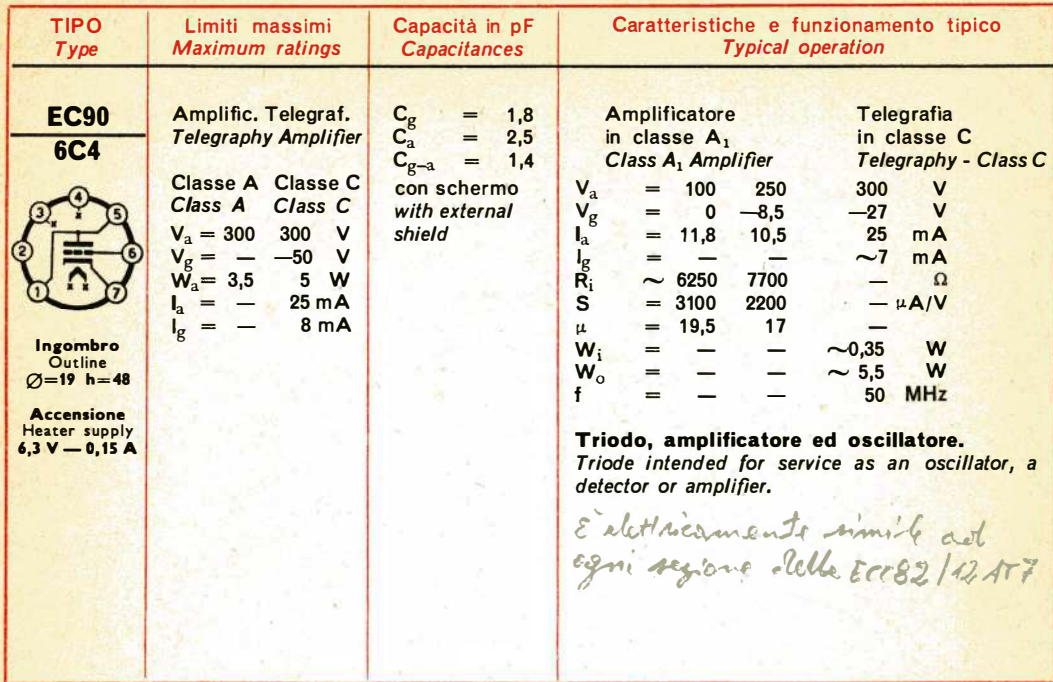 TIPO
Type
Limiti massimi
Maximum ratings
Capacità in pF
Capacitances
Caratteristiche e funzionamento tipico
Typical operation
EC90
6C4
4
3
5
2
6
1
7
Ingombro
Outline
Ø=19 h=48
Accensione
Heater supply
6,3 V — 0,15 A
Amplific. Telegraf.
Telegraphy Amplifier
Classe A Classe C
Class A Class C
Va = 300 300 V
Vg = — —50 V
Wa= 3,5 5 W
Ia = — 25 mA
Ig = — 8 mA
Cg = 1,8
Ca = 2,5
Cg–a = 1,4
con schermo
with external
shield
Amplificatore Telegrafia
in classe A1 in classe C
Class A1 Amplifier Telegraphy - Class C
Va = 100 250 300 V
Vg = 0 —8,5 —27 V
Ia = 11,8 10,5 25 mA
Ig = — — ~7 mA
Ri ~ 6250 7700 — Ω
S = 3100 2200 — μA/V
μ = 19,5 17 —
Wi = — — ~0,35 W
Wo = — — ~ 5,5 W
f = — — 50 MHz
Triodo, amplificatore ed oscillatore.
Triode intended for service as an oscillator, a
detector or amplifier.
È elettricamente simile ad
ogni sezione delle ECC82/12AT7